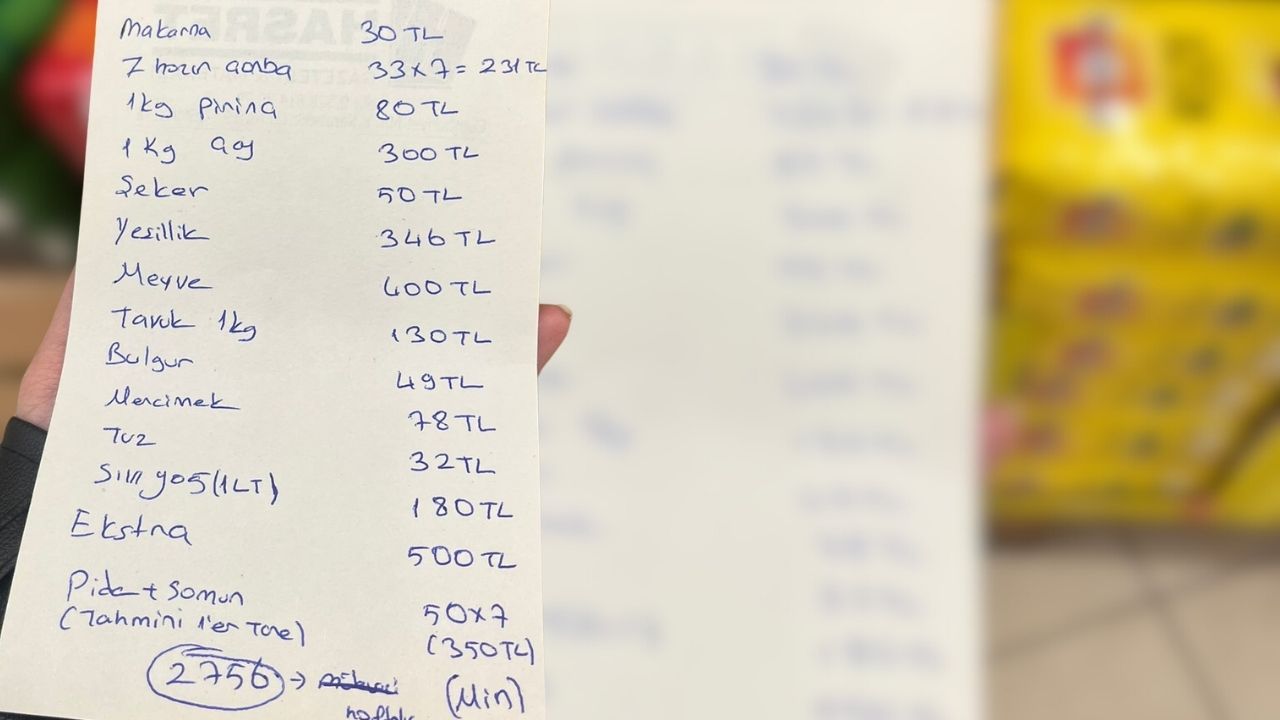 HASRET
Makarna 30 TL
7 hazır çorba 33x7 = 231 TL
1kg pirinç 80 TL
1 Kg 300 TL
Şeker 50 TL
Yeşillik 346 TL
Meyve 400 TL
Tavuk 1kg 130 TL
Bulgur 49 TL
Mercimek 78 TL
Tuz 32 TL
Sıvı yağ (1LT) 180 TL
Ekstra 500 TL
Pide + Somun 50x7
(Tahmini 1'er Tane) (350 TL)
2756 → (Min)
haftalık